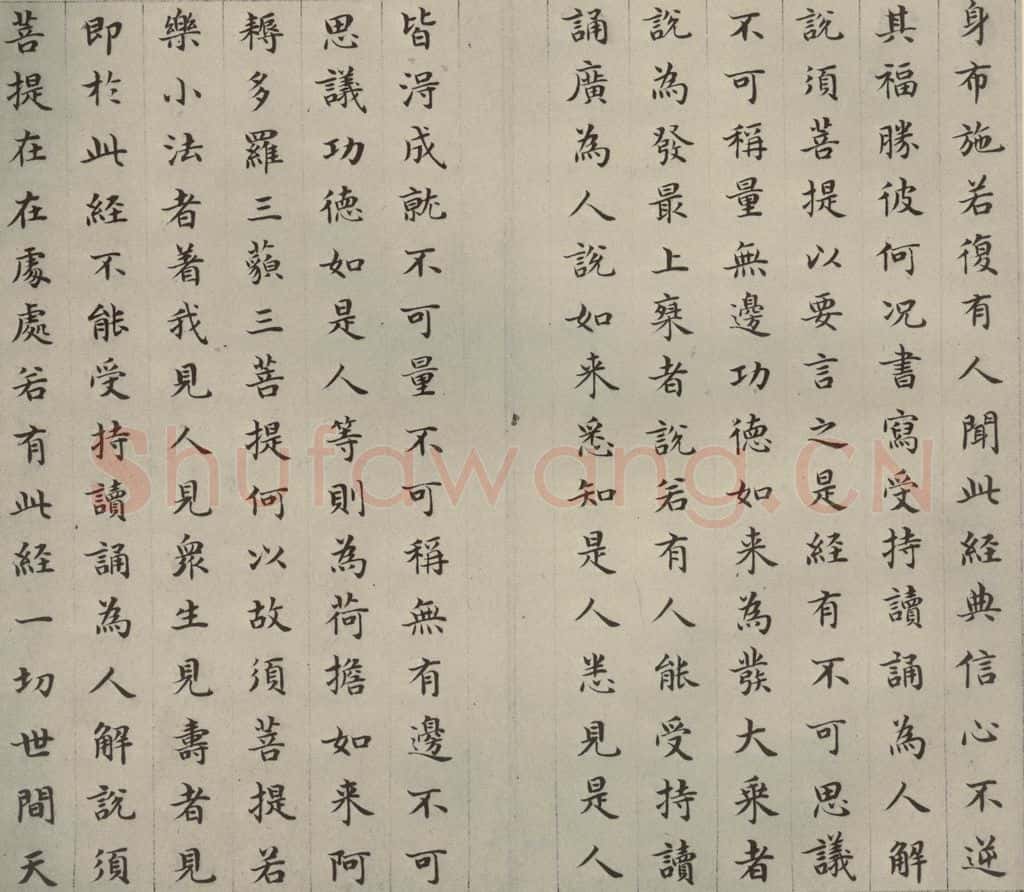 身布施若復有人聞此経典信心不逆
其福勝彼何況書寫受持讀誦為人解
說須菩提以要言之是経有不可思議
不可稱量無邊功德如来為發大乗者
說為發最上乗者說若有人能受持讀
誦廣為人說如来悉知是人悉見是人
皆淂成就不可量不可稱無有邊不可
思議功德如是人等則為荷擔如来阿
耨多羅三藐三菩提何以故須菩提若
樂小法者着我見人見衆生見壽者見
即扵此経不能受持讀誦為人解說須
菩提在在處處若有此経一切世間天
Shufawang.CN